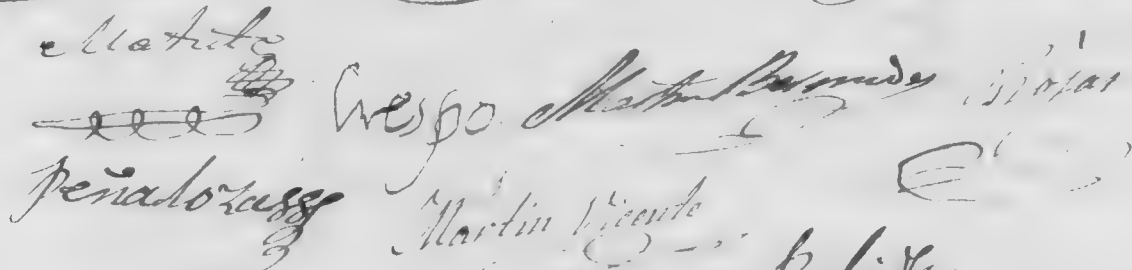 Matute Crespo Matheu Bermudes
Peñaloza Martin Vicente